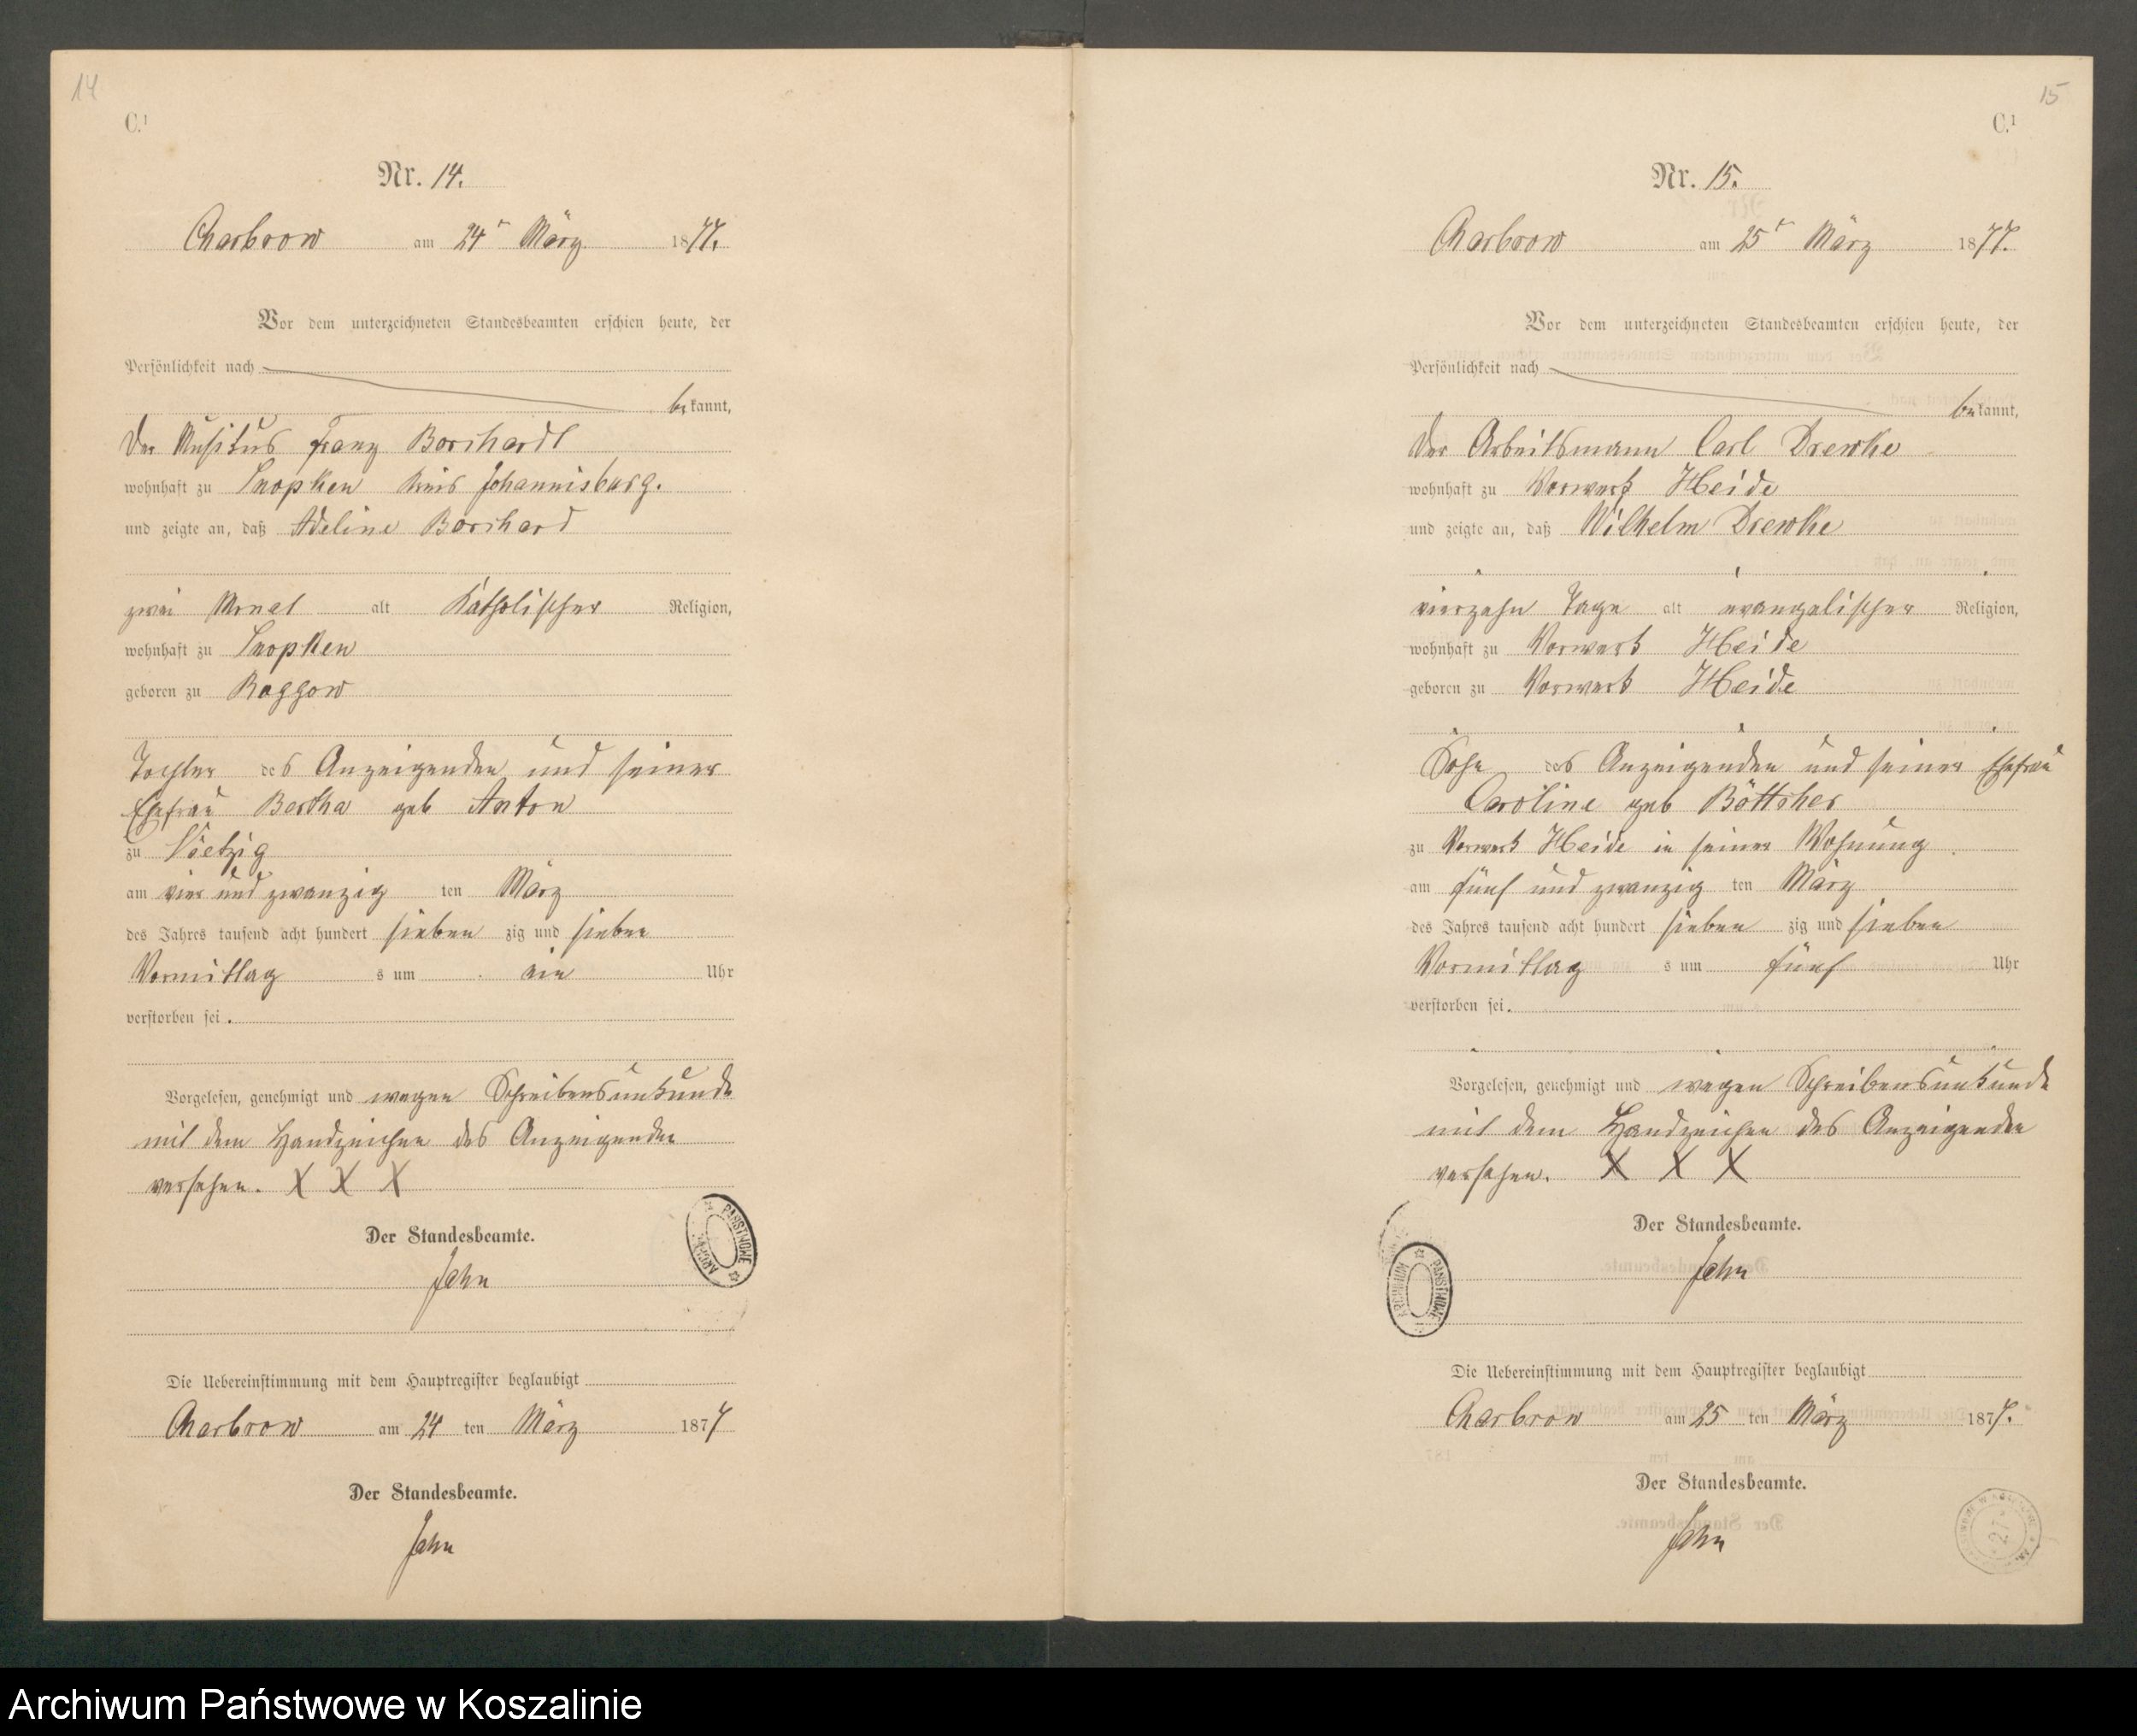 14
C.¹
Nr. 14.
Charbrow am 24ᵗ März 1877.
Vor dem unterzeichneten Standesbeamten erschien heute, der
Persönlichkeit nach
bekannt,
Der Musikus Franz Borchardt
wohnhaft zu Snopken Kreis Johannisburg.
und zeigte an, daß Adeline Borchard
zwei Monat alt Katholischer Religion,
wohnhaft zu Snopken
geboren zu Roggow
Tochter des Anzeigenden und seiner
Ehefrau Bertha geb Anton
zu Vietzig
am vier und zwanzig ten März
des Jahres tausend acht hundert sieben zig und sieben
Vormittag s um ein Uhr
verstorben sei.
Vorgelesen, genehmigt und wegen Schreibensunkunde
mit dem Handzeichen des Anzeigenden
versehen. X X X
Der Standesbeamte.
Jahn
ARCHIWUM PAŃSTWOWE
Die Uebereinstimmung mit dem Hauptregister beglaubigt
Charbrow am 24 ten März 1877
Der Standesbeamte.
Jahn
15
C.¹
Nr. 15.
Charbrow am 25ᵗ März 1877.
Vor dem unterzeichneten Standesbeamten erschien heute, der
Persönlichkeit nach
bekannt,
Der Arbeitsmann Carl Drewke
wohnhaft zu Vorwerk Heide
und zeigte an, daß Wilhelm Drewke
vierzehn Tage alt evangelischer Religion,
wohnhaft zu Vorwerk Heide
geboren zu Vorwerk Heide
Sohn des Anzeigenden und seiner Ehefrau
Caroline geb Böttcher
zu Vorwerk Heide in seiner Wohnung
am fünf und zwanzig ten März
des Jahres tausend acht hundert sieben zig und sieben
Vormittag s um fünf Uhr
verstorben sei.
Vorgelesen, genehmigt und wegen Schreibensunkunde
mit dem Handzeichen des Anzeigenden
versehen. X X X
Der Standesbeamte.
Jahn
ARCHIWUM PAŃSTWOWE
Die Uebereinstimmung mit dem Hauptregister beglaubigt
Charbrow am 25 ten März 1877.
Der Standesbeamte.
Jahn
Archiwum Państwowe w Koszalinie